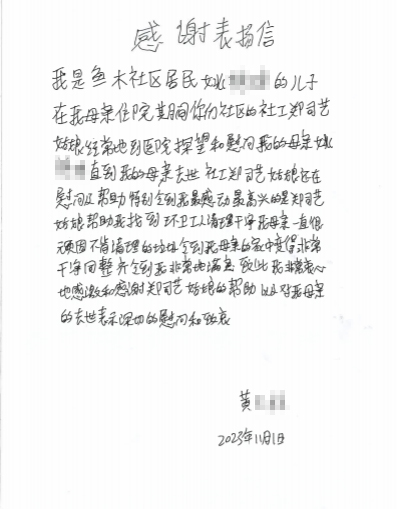 感谢表扬信
我是鱼木社区居民姚的儿子
在我母亲住院其间你们社区的社工郑司艺
姑娘经常地到医院探望和慰问我的母亲姚
直到我的母亲去世 社工郑司艺姑娘还在
慰问及帮助 特别令到我最感动最高兴的是郑司艺
姑娘帮助我找到环卫工人清理干净我母亲一直很
顽固不肯清理的垃圾 令到我母亲的家中变得非常
干净同整齐 令到我非常地满意 致此 我非常衷心
地感激和感谢郑司艺姑娘的帮助 以及对我母亲
的去世表示深切的慰问和致哀
黄
2023年11月1日